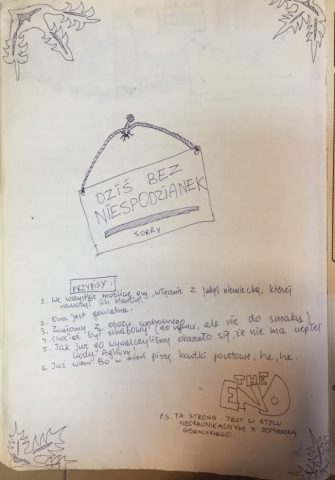 DZIŚ BEZ
NIESPODZIANEK
SORRY
PRZYPISY:
1. We wszystkie możliwe gry, włącznie z jakąś niemiecką, której
nauczył ich Martin.
2. Ona jest genialna.
3. Znajomy z obozu wędrownego
4. Choć też był schabowy (do rymu, ale nie do smaku)
5. Jak już go wywalczyliśmy okazało się, że nie ma ciepłej
wody.
6. Już wiem! Bo w dzień piszę kartki pocztowe, he, he.
THE
END
P.S. TA STRONA JEST W STYLU
NEOFRONIKALNYM Z DOMIESZKĄ
GÓRALSKIEGO